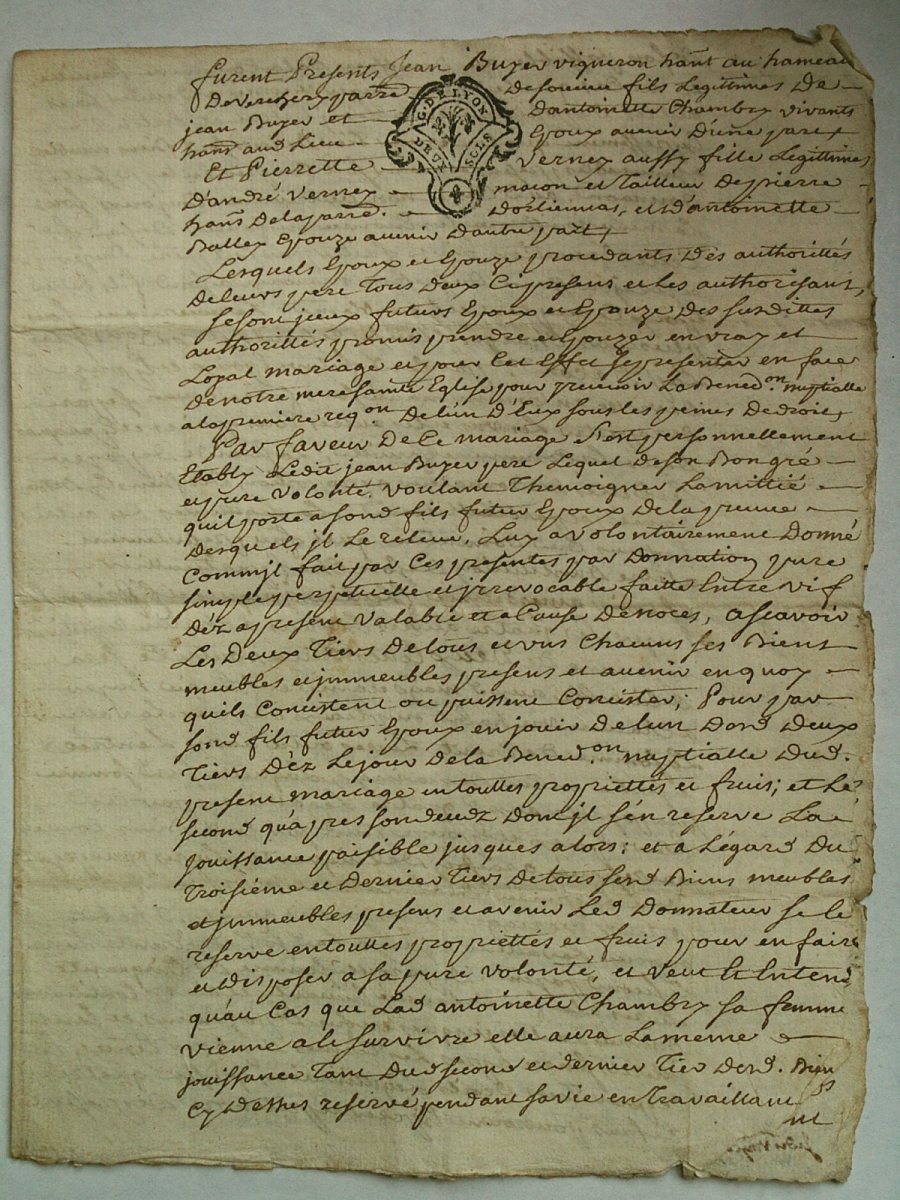 furent Presents Jean Buyer vigneron hant au hameau
De Verchery parre De soucieu fils Legittimes De
jean Buyer et D'antoinette Chambry vivants
hans aud Lieu Epoux avenir D'une part,
Et Pierrette Verney aussy fille Legittimes
D'andré Verney macon et Tailleur De pierre
hans De la parre. D'orliennas, et D'antoinette
Balley Epouze avenir D'autre part,
G. DE LYON
DEUX SOLS
Lesquels Epoux et Epouze procedants Des authorittés
De leurs pere Tous Deux Cy presens et Les authorisant,
se sont jceux futurs Epoux et Epouze Des susdittes
authorittés promis prendre et Epouzer en vray et
Loyal mariage et pour Cet Effet se presenter en face
De notre mere sainte Eglise pour recevoir La Bened.on nuptialle
a la premiere reqon. De l'un D'Eux sous les peines De droit,
Par faveur De Ce mariage s'est personnellement
Etably Ledit jean Buyer pere Lequel De son Bon gré
et pure Volonté. voulant Themoigner Lamittié
qu'il porte a sond fils futur Epoux De la preuve
Desquels jl Le releve, Luy a volontairement Donné
Comm jl fait par Ces presentes par Donnation pure
simple perpetuelle et jrrevocable faitte Entre vif
Déz a present Valable et a Cause De noces, ascavoir
Les Deux Tiers De tous et uns Chacuns ses Biens
meubles et jmmeubles presens et avenir en quoy
quils Concistent ou puissent Concister; Pour par
sond fils futur Epoux en jouir De l'un Desd Deux
Tiers Déz Le jour De la Bened.on nuptialle Dud.
present mariage en touttes propriettés et fruis; et Le
second qu'apres son decedz Dont jl s'en reserve La
jouissance paisible jusques alors; et a Légard Du
Troisiéme et Dernier Tiers De tous sesd Biens meubles
et jmmeubles presens et avenir Led Donnateur se le
reserve en touttes propriettes et fruis pour en faire
et Disposer a sa pure volonté, et Veut Et Entend
qu'au Cas que Lad antoinette Chambry sa femme
vienne a le survivre elle aura La meme
jouissance Tant Dud second et dernier Tier Desd. Bien
Cy Dessus reservé pendant sa vie en Travaillant